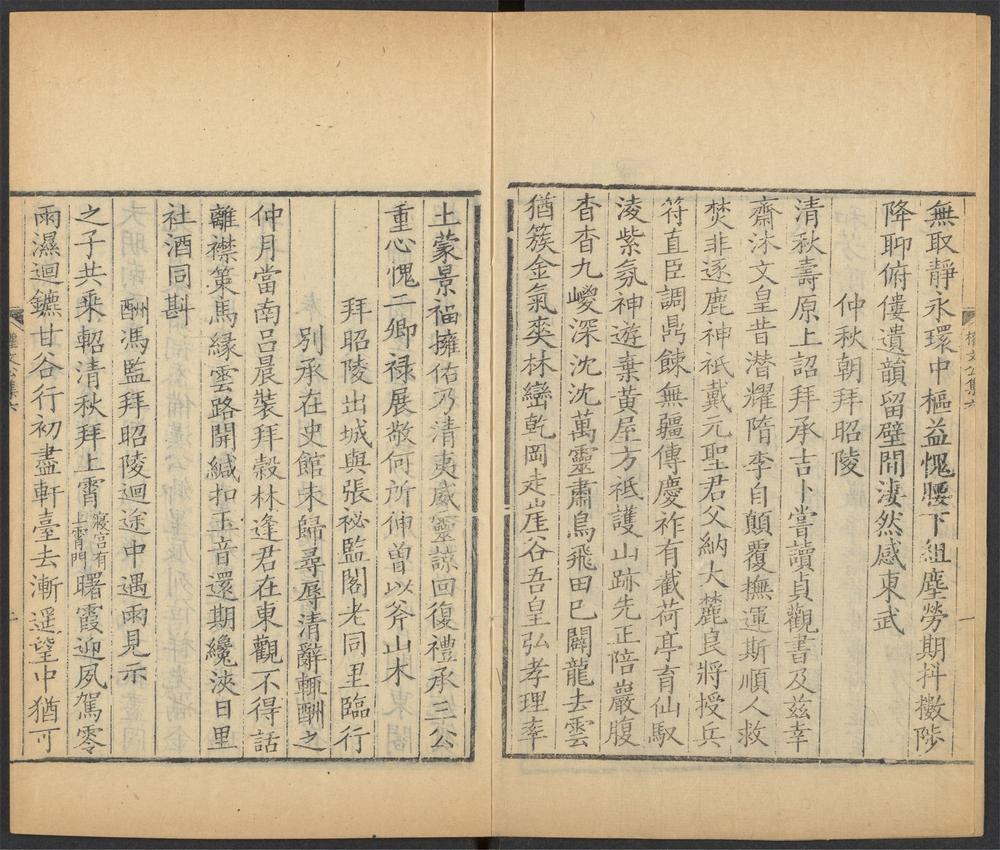 無取靜永環中樞益愧腰下組塵勞期抖擻陟
降聊俯僂遺韻留壁間淒然感東武
仲秋朝拜昭陵
清秋壽原上詔拜承吉卜嘗讀貞觀書及茲幸
齋沐文皇昔潜耀隋李自顛覆撫運斯順人救
焚非逐鹿神祇戴元聖君父納大麓良將授兵
符直臣調鼎餗無疆傳慶祚有截荷亭育仙馭
淩紫氛神遊棄黃屋方祗護山跡先正陪巖腹
杳杳九嵕深沈沈萬靈肅鳥飛田已闢龍去雲
猶簇金氣爽林巒乾岡走崖谷吾皇弘孝理率
土蒙景福擁佑乃清夷威靈諒回復禮承三公
重心愧二卿禄展敬何所伸曾以斧山木
拜昭陵出城與張祕監閣老同里臨行
別承在史館未歸尋辱清辭輒酬之
仲月當南呂晨裝拜穀林逢君在東觀不得話
離襟策馬緣雲路開緘扣玉音還期纔浹日里
社酒同斟
酬馮監拜昭陵迴途中遇雨見示
之子共乘軺清秋拜上霄寢宮有上霄門曙霞迎夙駕零
雨濕迴鑣甘谷行初盡軒臺去漸遥望中猶可